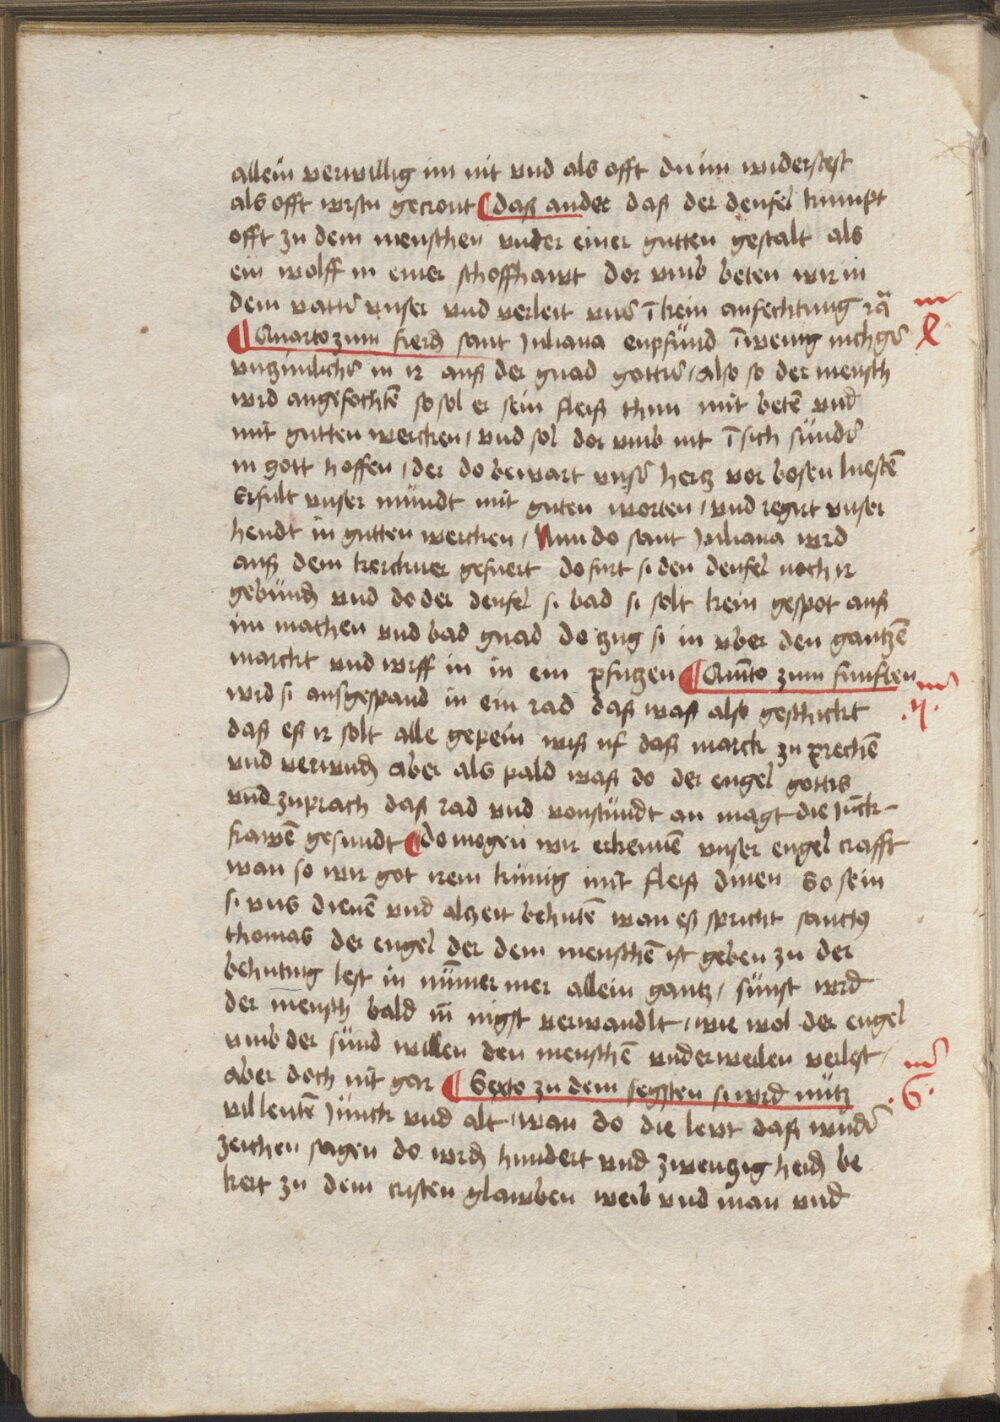 allein verwillig im nit vnd als offt du im widerstest
als offt wirstu gecront ¶ daß ander daß der deufel kumpt
offt zu dem menschen vnder einer gutten gestalt als
ein wolff in einer schoffhawt dor vmb beten wir in
dem vatter vnser vnd verleit vns ī kein anfechtung
¶ Quarto zum fierd sant Juliana enpfund
in ir auß der gnad gottis / also so der mensch
wird angefochtē so sol er sein fleiß thun mit betē vnd
mit gutten wercken / vnd sol dor vmb nit ī sich sunder
in gott hoffen / der do bewart vnser hertz vor bosen luestē
Erfult vnser mundt mit guten worten / vnd regirt vnser
hendt in gutten wercken / Nun do sant Juliana wird
auß dem kerckner gefuert do furt si den deufel noch ir
gebund vnd do der deufel si bad si solt kein gespot auß
im machen vnd bad gnad do zug si in vber den gantzē
marckt vnd wirff in in ein pfutzen ¶ Quīto zum funfften
wird si ausgespand in ein rad daß waß also geschickt
daß eß ir solt alle gepein biß uf daß marck zu prechē
vnd verwund aber als pald waß do der engel gottis
vnd zuprach daß rad vnd vonstundt an magt die Junck-
frawē gesundt ¶ do mogen wir erkennē vnser engel crafft
wan so wir got irem kunig mit fleiß dinen So sein
si vns dienē vnd alzeit behutē wan eß spricht sanctus
thomas der engel der dem menschē ist geben zu der
behutung lest in nūmer mer allein gantz / sunst wird
der mensch bald verwandlt / wie wol der engel
vmb der sund willen den menschē vnderweilen verlest /
aber doch nit gar ¶ Sexto zu dem segsten si wird nutz
vil leutē Junck vnd alt / wan do die lewt daß wunder
zeichen sagen do wurd hundert vnd zwenzig heid be
kert zu dem cristen glawben weib vnd man vnd